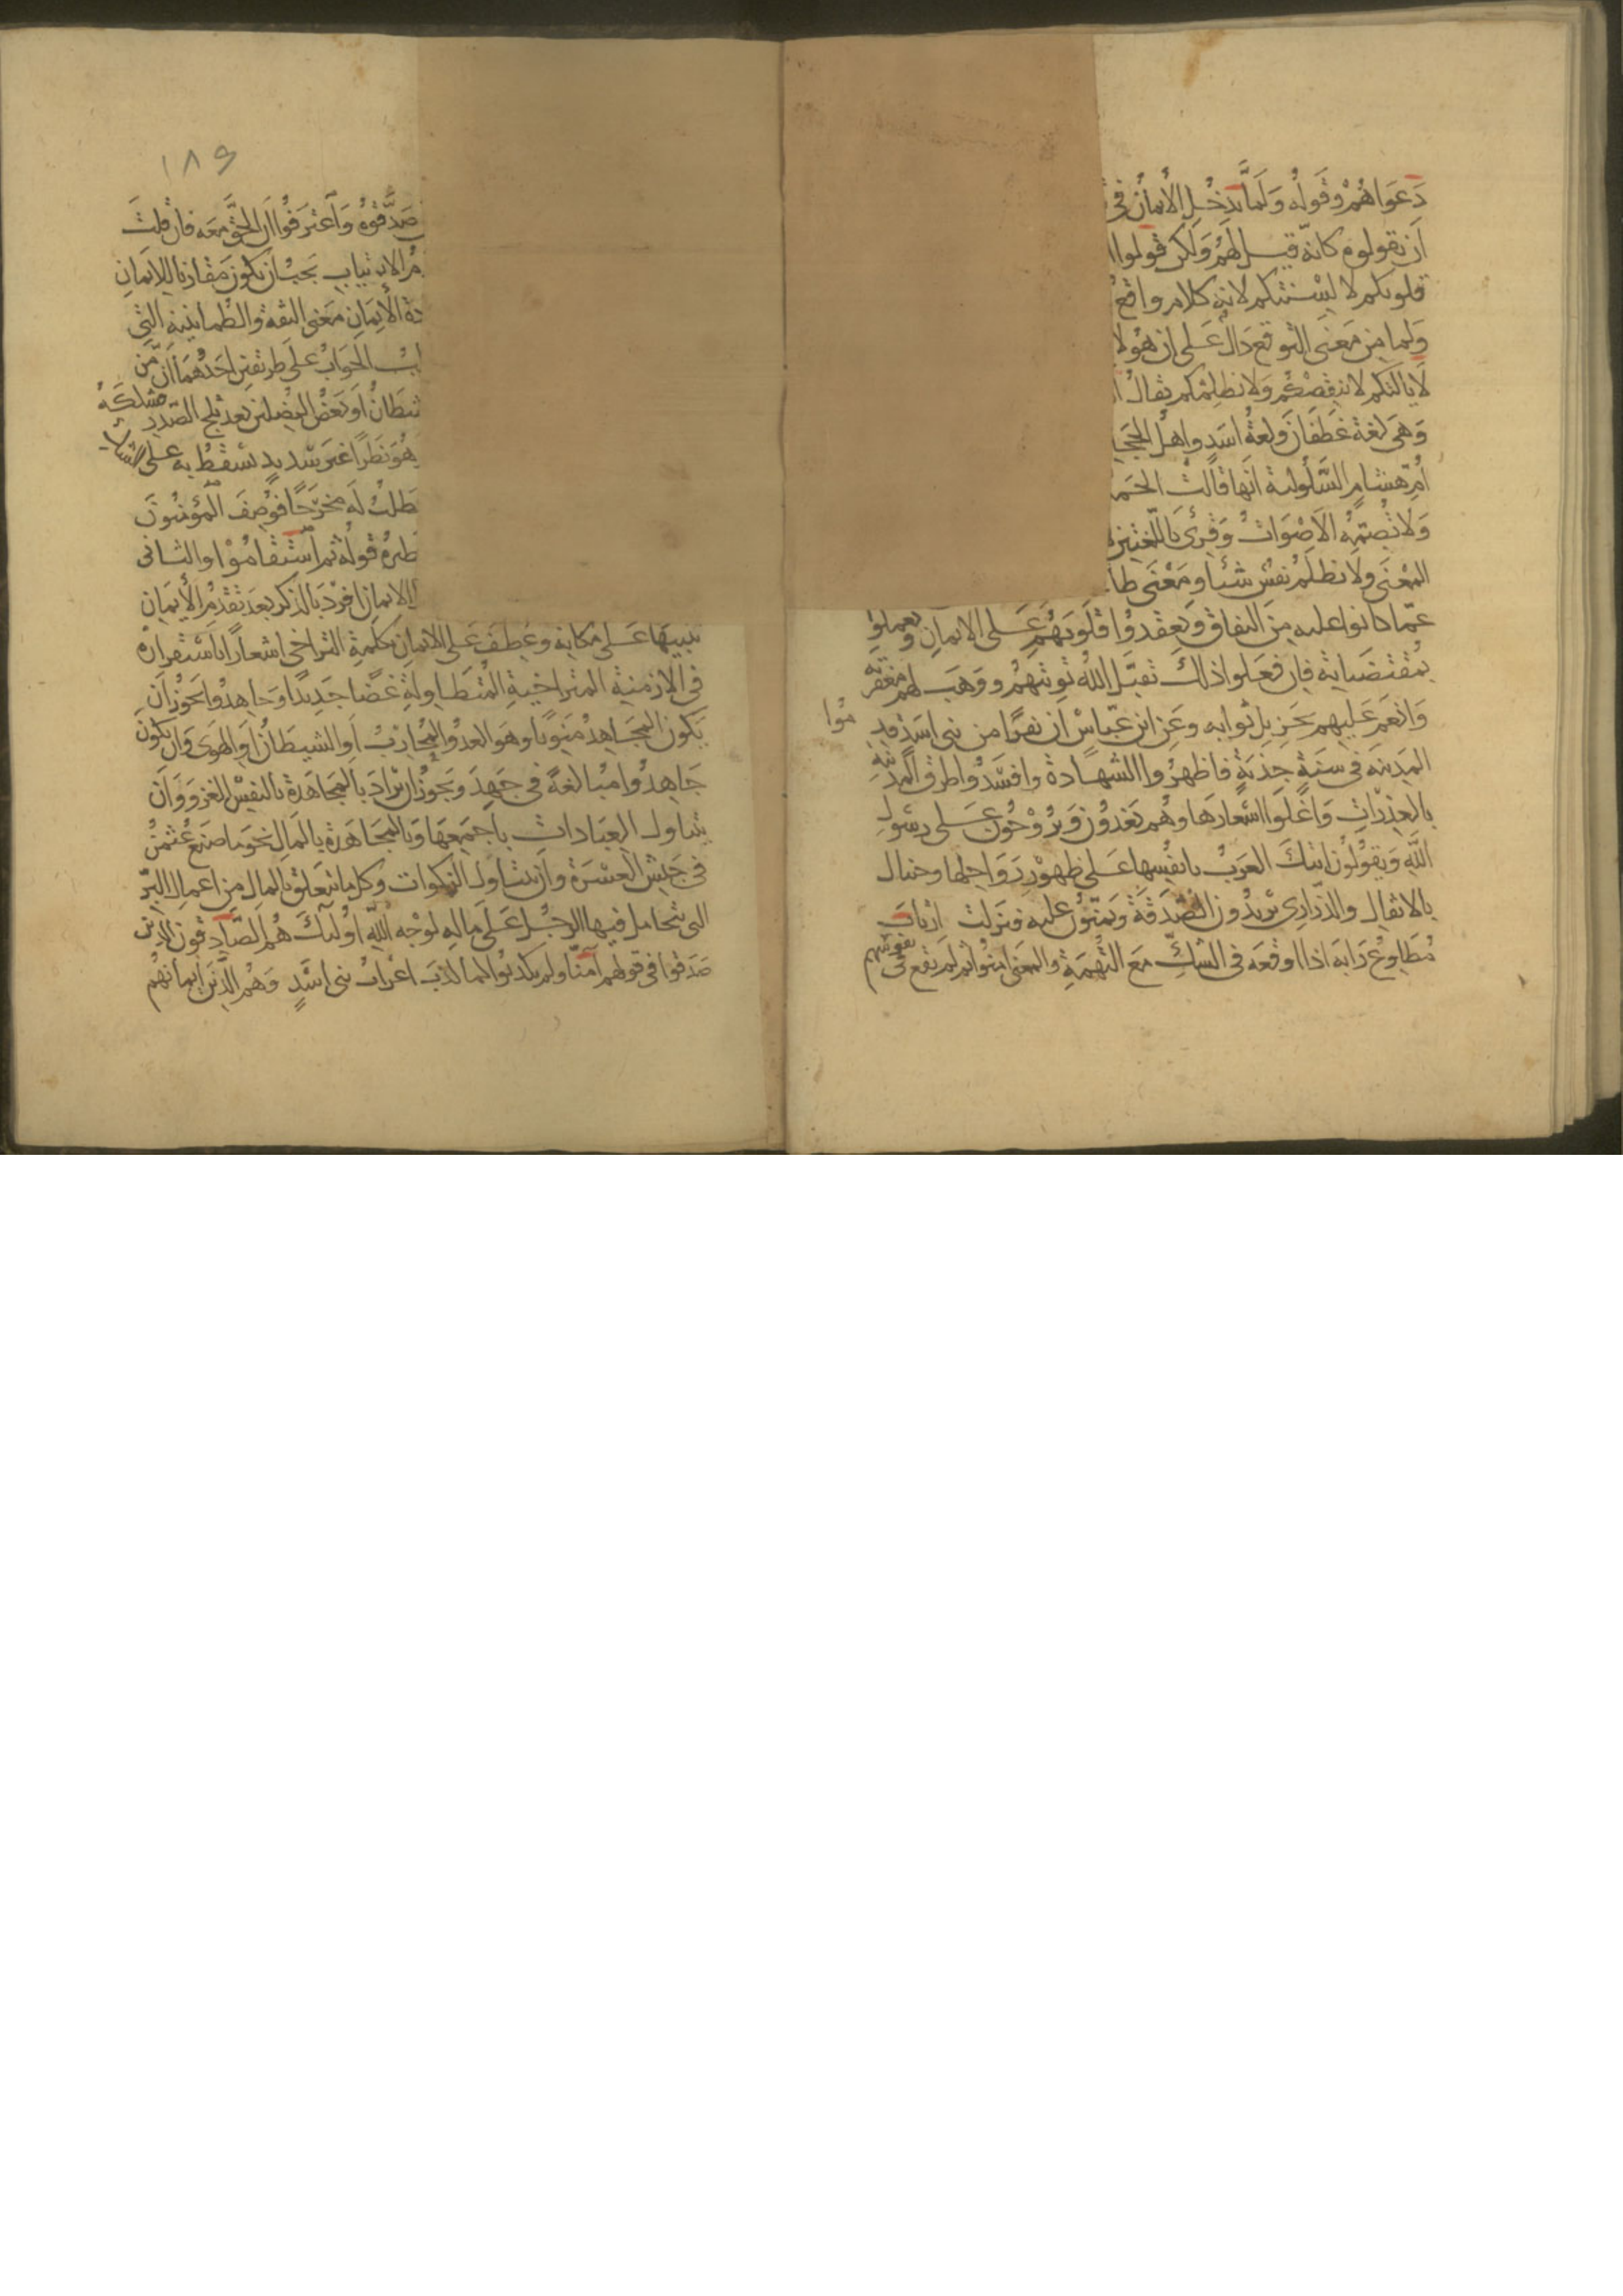 دَعوَاهُمْ وقَولُه وَلَمَّا يَدخُلِ الْأيمانُ فى
اَن يقولوه كانّه قيل لَهُم وَلكن قولوا ا
قلوبكم لا لِسنتكم لانه كلام واقع
وَلما من مَعنى التوقع دَالٌ عَلى ان هؤلا
لَا يالتكم لا ينقصكُم وَلا يظلمكم يقالُ ا
وَهى لغة غَطَفانَ ولغةُ اسَد واهل الحجا
أمّ هشامٍ السَّلُولية انها قالت الحَمد
وَلا تُصِمّهُ الاصْوَاتُ وَقُرِئَ باللّغتين و
المعْنَى ولا تظلَمُ نفسٌ شَيْأ ومَعْنى طا
عمّا كانوا عليه من النفاق وَيَعقدوُا قُلُوبَهُم عَلى الايمان ويعملوا
بمُقتضياته فان فعلوا ذلك تقبّل اللهُ تَوبتَهُم ووَهَبَ لهم مغفرته
وَانعَم عَليهم بجزيل ثوابه وعَن ابن عبّاسْ ان نفرًا من بنى اسَد قدموا
المَدينه فى سَنَةٍ جدْبَةٍ فاظهرُوا الشهادة وافسَدُوا طرق المدينه
بالعذرات وَاغلَوا اسْعارَها وهُم يَغدُونَ وَيرُوْحُونَ عَلى رسُولِ
اللهِ وَيَقولُون اتتكَ العَربُ بانفُسِها عَلى ظهُوْرِ رَوَاحلها وجئناك
بالاثقال والذرارى يُريدُون الصّدَقةَ وَيمنّوُنَ عليه فنزلت ارتابَ
مُطَاوِعُ رَابَه اذا اوقعَه فى الشكّ مَعَ التُهمَةِ والمعنى امنوُا ثم لَم يقع فى نفوسهم
١٨٩
صَدَّقوُهُ وَاعْترَفوُا اَن الحقّ مَعَه فان قلتَ
مُ الارتيابِ يَجبُ ان يَكونَ مقارنا لِلايمانِ
دة الْأيمَانِ مَعنى الثقة والطمانينة التى
بُ الجَوابُ على طريقينِ احَدُهُمَا اَنّ من
شيطانٌ اَو بَعضُ المضلين بعد ثلج الصّدر مشككهُ
هُو نظَرًا غيرَ سَديدٍ يسْقُطُ به على الشك
يَطلُبُ لَه مخرَجًا فوُصفَ المؤمنوُنَ
ظيرهُ قولُه ثم اسْتَقَامُوْا والثانى
الايمانِ افردَ بالذكر بعدَ تقدمِ الأيمَانِ
تنبيهًا عَلى مكانِه وعُطفَ عَلى الايمانِ بكلمةِ التراخى اشعارًا باسْتقرارهْ
فى الازمنةِ المتراخيةِ المُتطاولةِ غضًا جَديدًا وَجاهدوُا يَجوزُ اَن
يَكونَ المجَاهدُ مَنوِيًا وهوَ العدُوُّ المحُاربُ اَو الشيطانُ اوِ الهوَى وَان يَكونَ
جَاهدوُا مبُالغةً فى جَهدَ ويَجوزُ ان يُرادَ بالمجَاهَدة بالنفسْ الغزو وَانَ
يتناولَ العبَاداتِ باجمعهَا وَبالمجَاهَدة بالمالِ نحو ما صنعَ عُثمنُ
فى جَيْش العُسْرَة وان يتناول الزكوات وكل ما يتعلق بالمال من اعمال البرّ
التى يتحامل فيها الرجُل عَلَى مالِهِ لوجْه اللهِ اولئك هُم الصّادقون الذين
صَدَقوُا فى قولهم آمنّا ولم يكذبوُا كما كذبَ اعرابُ بنى اسَدٍ وَهُم الّذينَ ايمانهُم